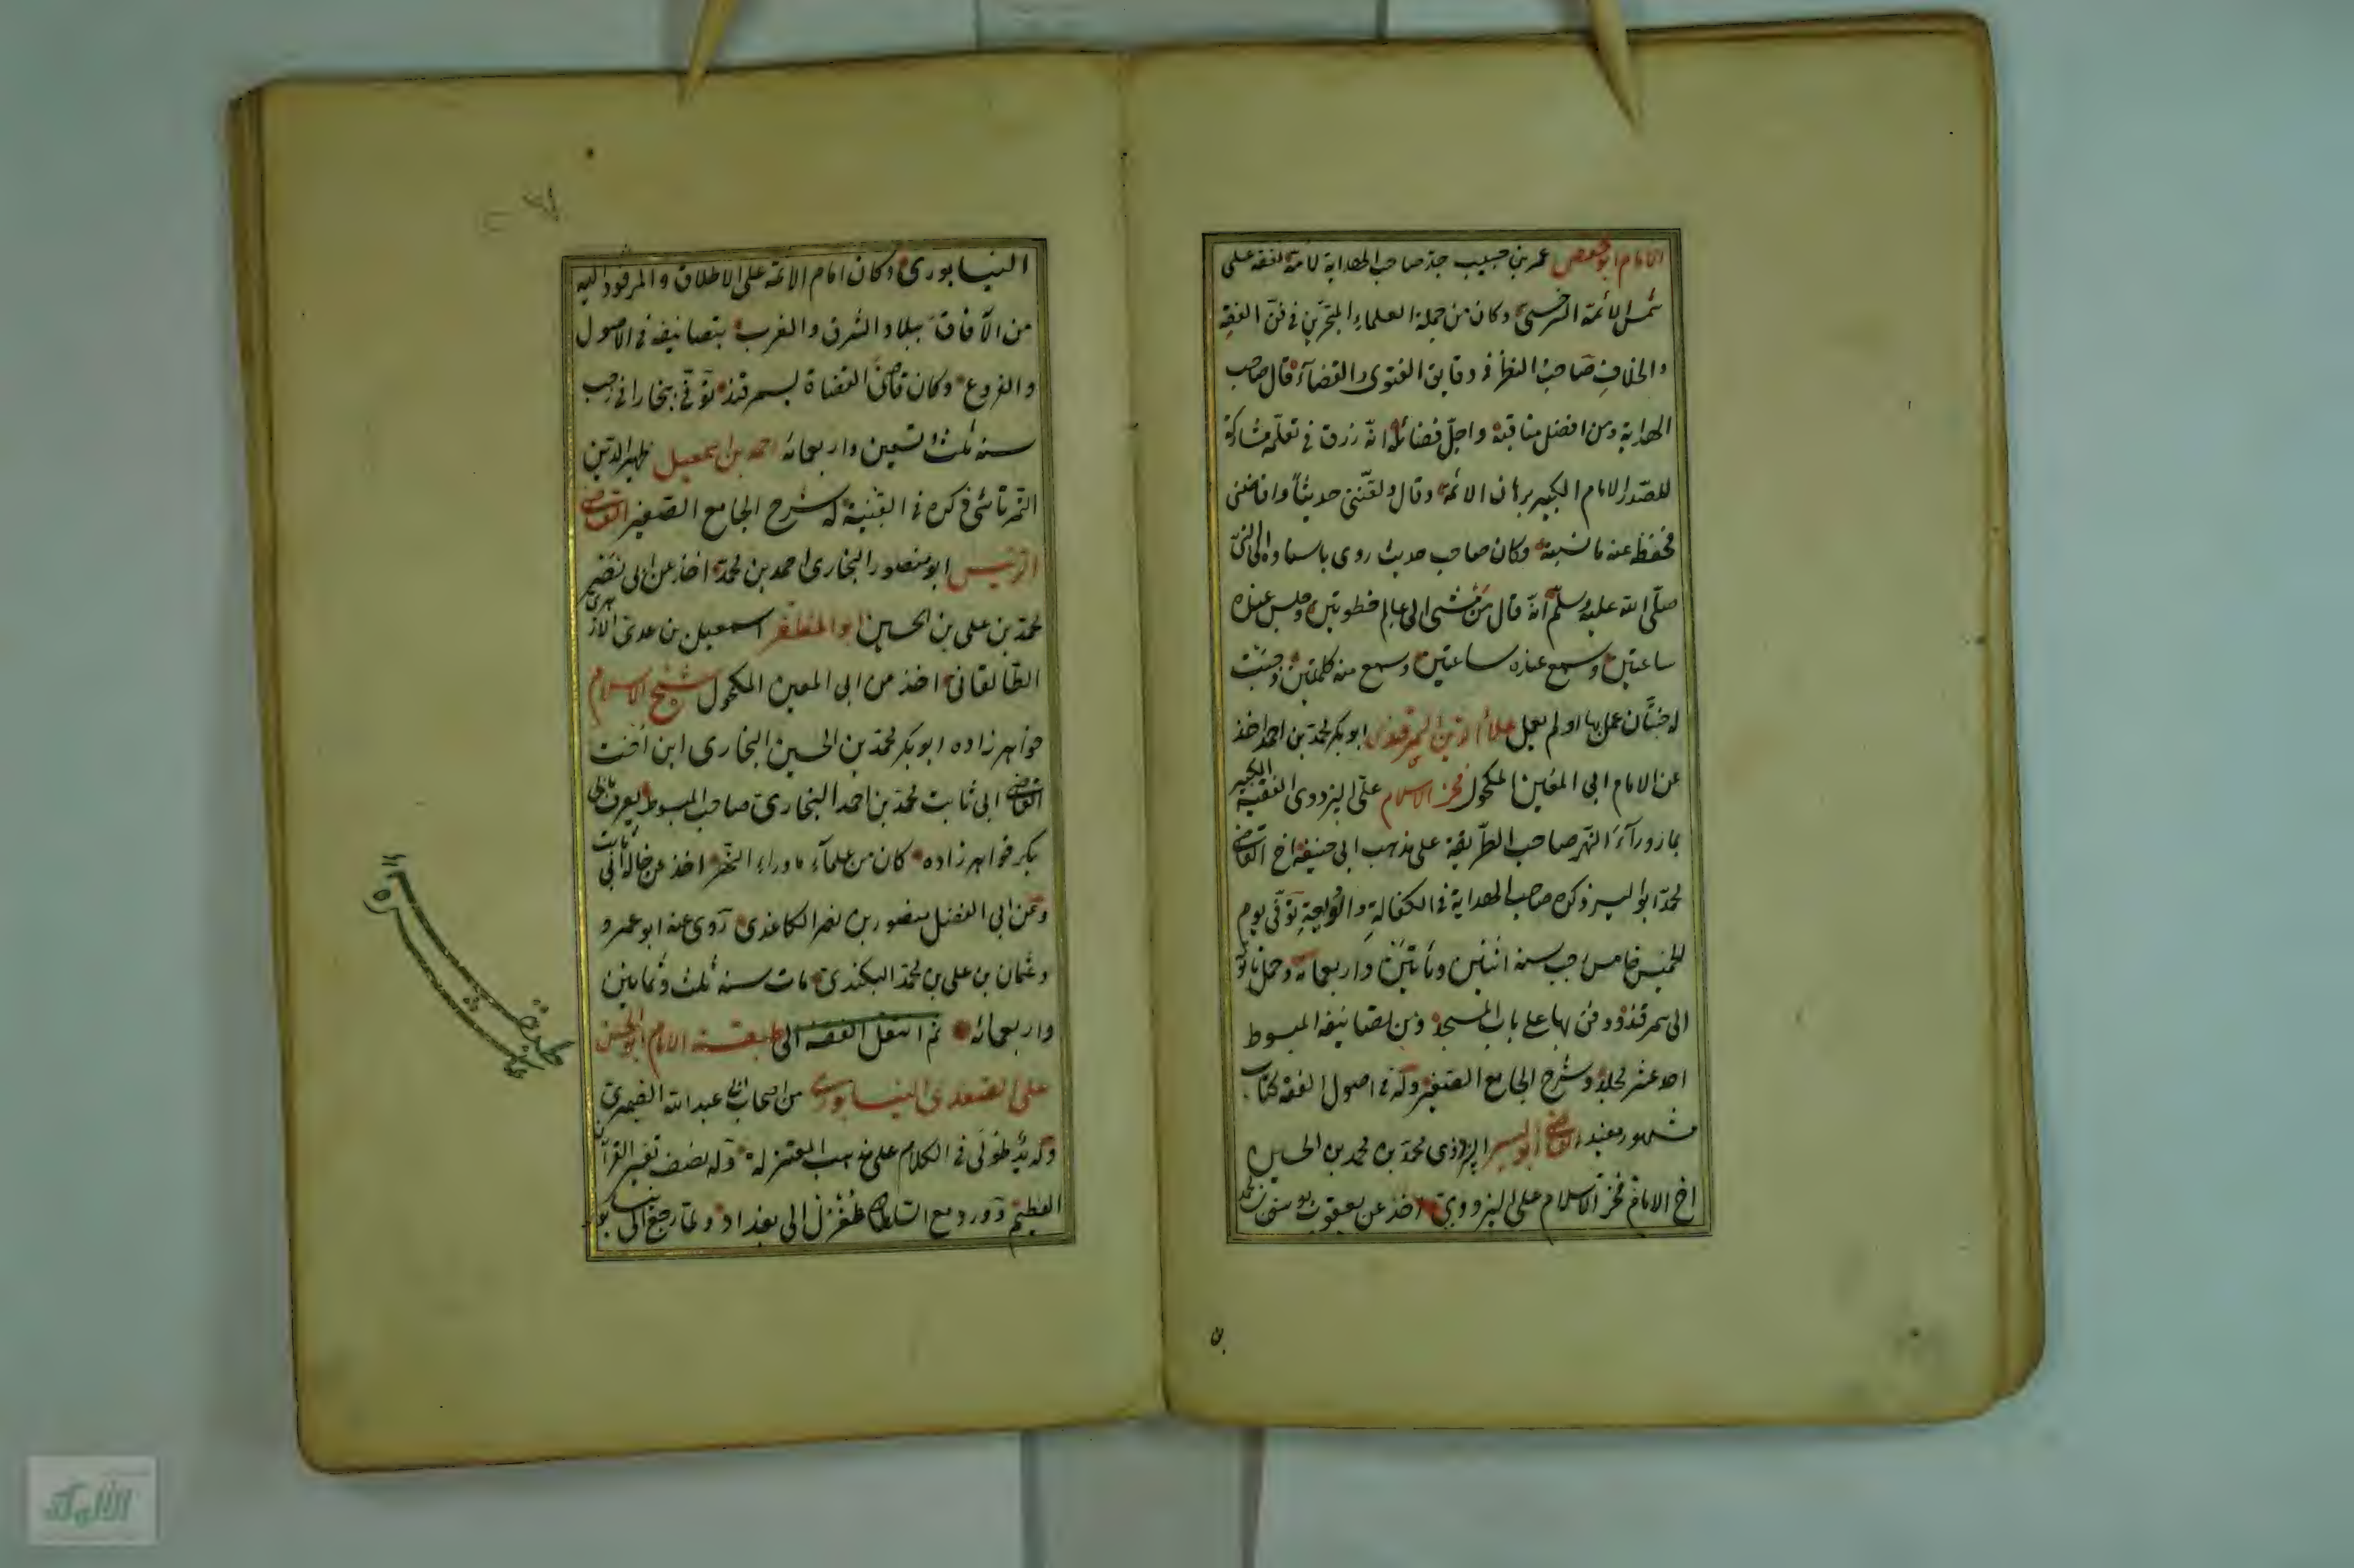 الامام ابو حفص عمر بن حبيب جد صاحب الهداية لامه تفقه على
شمس الائمة السرخسى وكان من جملة العلماء المتبحرين فى فن الفقه
والخلاف صاحب النظر فى دقايق الفتوى والقضاء قال صاحب
الهداية ومن افضل مناقبه واجل فضائله انه رزق فى تعلمه مشاركة
للصدر الامام الكبير برهان الائمة وقال ولقننى حديثا وانا صبى
فحفظ عنه ما نسيته وكان صاحب حديث روى باسناده الى النبى
صلى الله عليه وسلم انه قال من مشى الى عالم خطوتين وجلس عنده
ساعتين وسمع عنده ساعتين وسمع منه كلمتين وجبت
له جنتان عمل بها او لم يعمل علاء الدين السمرقندى ابو بكر محمد بن احمد اخذ
عن الامام ابى المعين المكحول فخر الاسلام على البزدوى الفقيه الكبير
بما وراء النهر صاحب الطريقة على مذهب ابى حنيفة اخ القاضى
محمد ابو اليسر ذكره صاحب الهداية فى الكفالة توفى يوم
الخميس خامس رجب سنة اثنين وثمانين واربعمائة وحمل تابوته
الى سمرقند ودفن بها على باب المسجد ومن تصانيفه المبسوط
احد عشر مجلد وشرح الجامع الصغير وله فى اصول الفقه كتاب
مشهور مفيد القاضى ابو اليسر البزدوى محمد بن محمد بن الحسين
اخ الامام فخر الاسلام على البزدوى اخذ عن يعقوب يوسف بن محمد
ن
النيسابورى وكان امام الائمة على الاطلاق والمرفود اليه
من الآفاق ببلاد الشرق والغرب بتصانيفه فى الاصول
والفروع وكان قاضى القضاة بسمرقند توفى ببخارا فى رجب
سنة ثلث وتسعين واربعمائه احمد بن اسمعيل ظهير الدين
التمرتاشى ذكره فى القنية له شرح الجامع الصغير القاضى
الرئيس ابو منصور البخارى احمد بن محمد اخذ عن ابى نصير
محمد بن على بن الحسين ابو المظفر اسمعيل بن عدى الازهرى
الطالقانى اخذ من ابى المعين المكحول شيخ الاسلام
خواهر زاده ابو بكر محمد بن الحسين البخارى ابن اخت
القاضى ابى ثابت محمد بن احمد البخارى صاحب المبسوط يعرف بابى
بكر خواهر زاده كان من علماء ما وراء النهر اخذ عن خاله ابى ثابت
وعن ابى الفضل منصور بن نصر الكاغذى روى عنه ابو عمرو
وعثمان بن على بن محمد البيكندى مات سنة ثلث وثمانين
واربعمائه ثم انتقل الفقه الى طبقة الامام ابو الحسن
على الصندلى النيسابورى من اصحاب ابى عبد الله الصيمرى
وله يد طولى فى الكلام على مذهب المعتزله وله نصف تفسير القرآن
العظيم وورد مع السلطان طغرل الى بغداد ولما رجع الى نيسابور